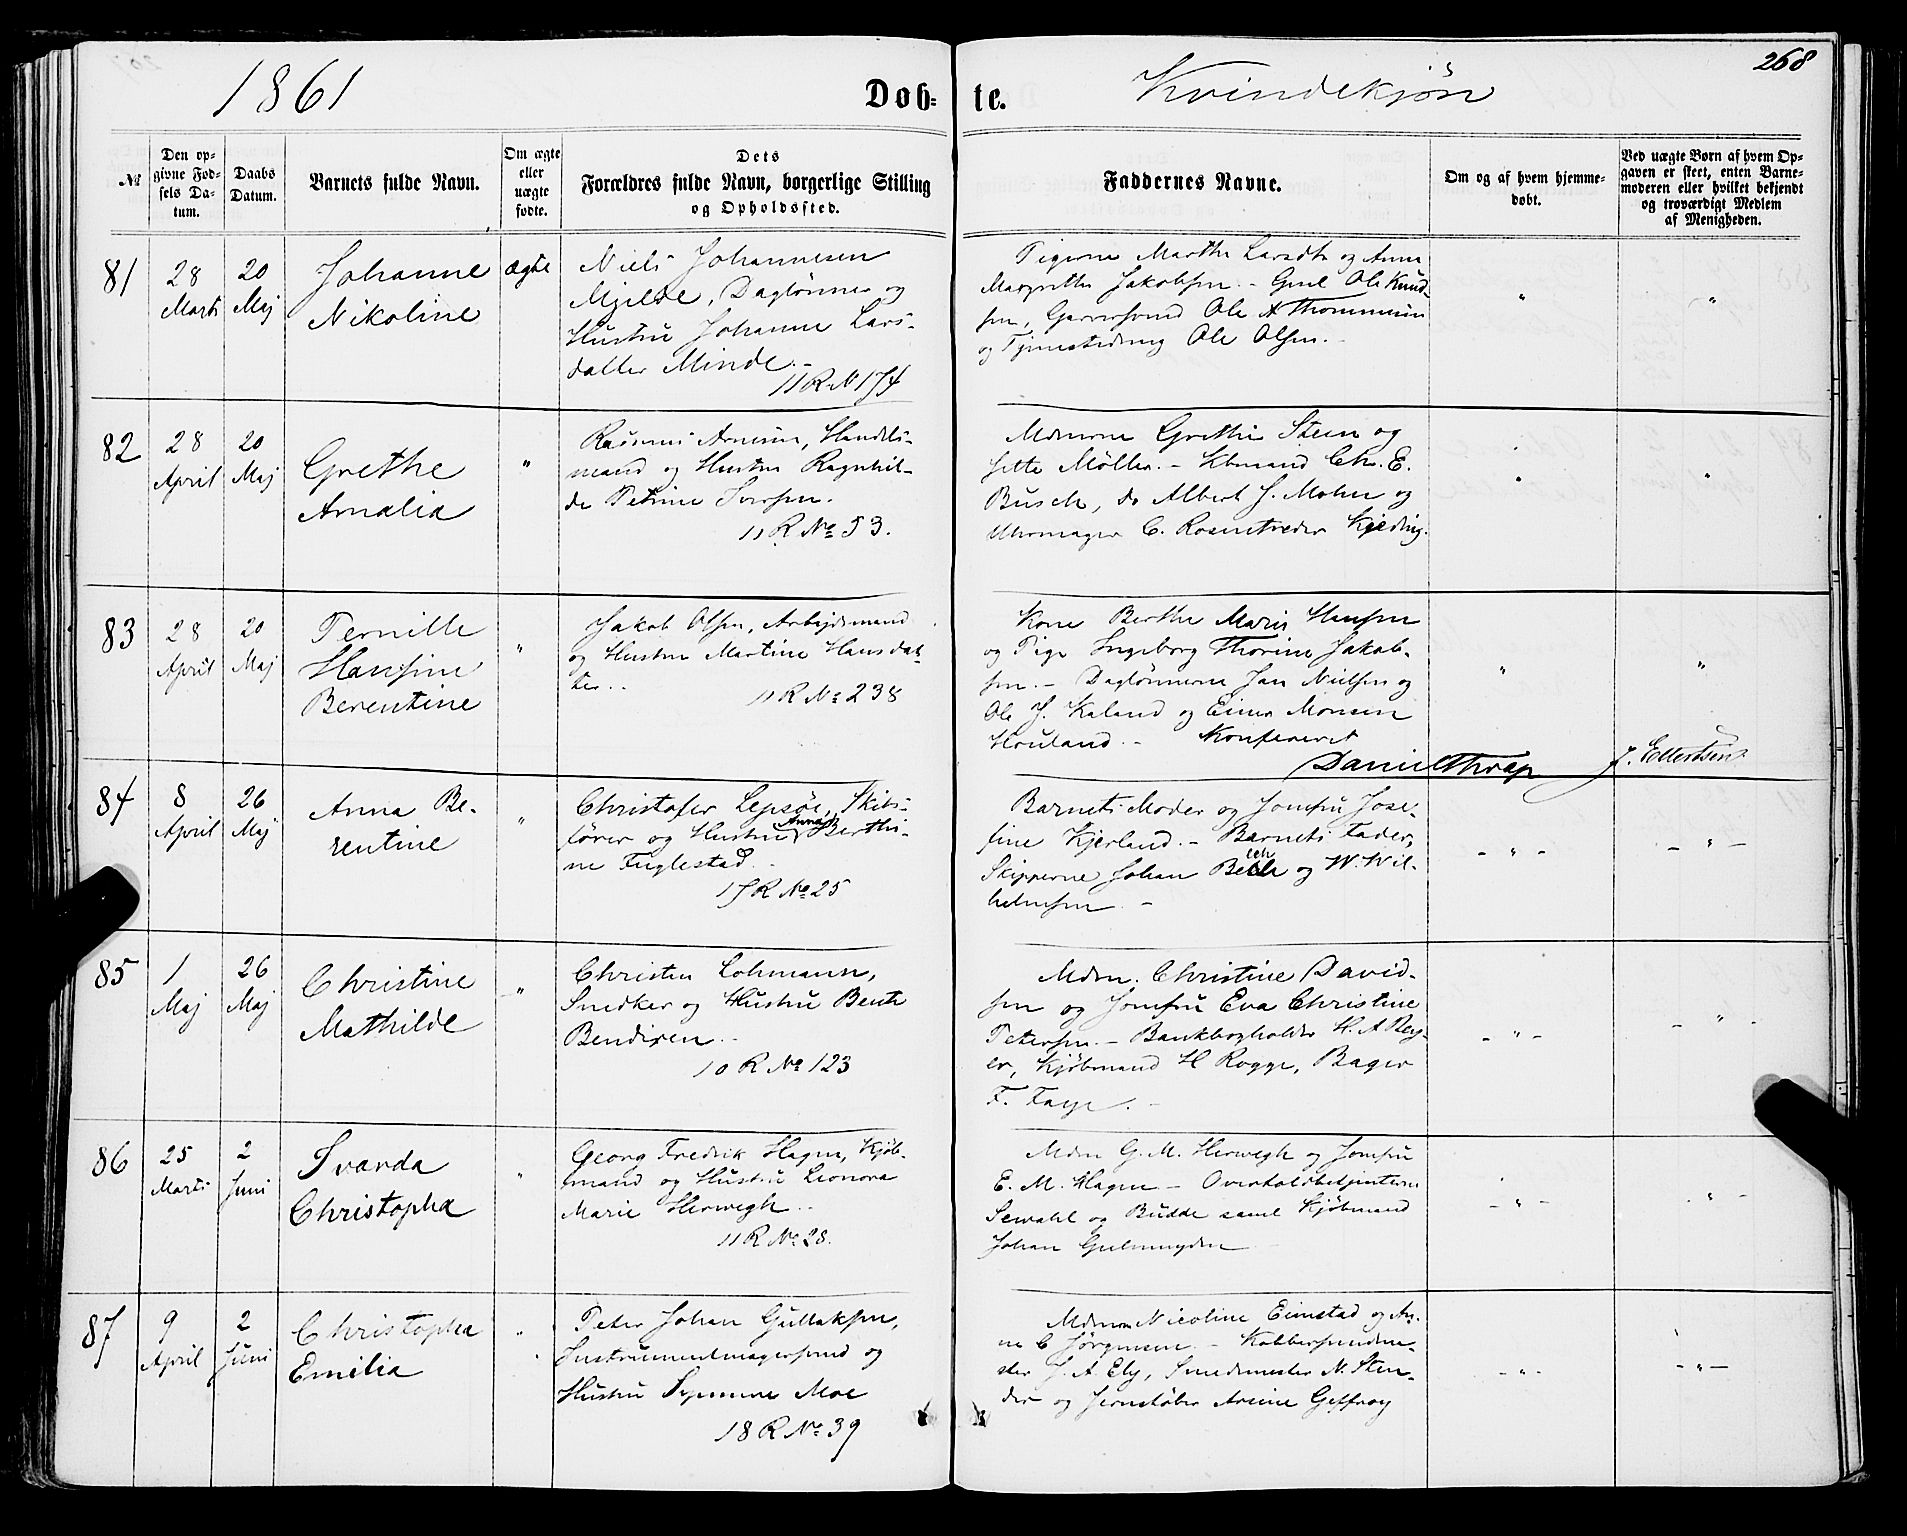 268
1861
Döb-
te.
Kvindekjön
№
Den op-
givne Fød-
sels Da-
tum.
Daabs
Datum.
Barnets fulde Navn.
Om ægte
eller
uægte
fødte.
Dets
Forældres fulde Navn, borgerlige Stilling
og Opholdssted.
Faddernes Navne.
Om og af hvem hjemme-
døbt.
Ved uægte Børn af hvem Op-
gaven er skeet, enten Barne-
moderen eller hvilket bekjendt
og troværdigt Medlem
af Menigheden.
81
28
Marts
20
Maj
Johanne
Nikoline
ægte
Niels Johannesen
Mjelde, Daglønner og
Hustru Johanne Lars-
datter Minde.-
11 R N 174
Pigerne Marthe Larsdtr og Anne
Margrethe Jakobsen. - Ole Knud-
sen, Garversvend Ole A Thommesen
og Tjenestedreng Ole Olsen.-
"
"
82
28
April
20
Maj
Grethe
Amalia
"
Rasmus Arnesen, Handels-
mand og Hustru Ragnhil-
de Petrine Iversen.
11 R № 53.
Mdmrne Grethe Steen og
Jette Møller. - Kbmand Ch. E.
Busch, do Albert J. Mohn og
Uhrmager C. Rosentreder Kjeding.
"
"
83
28
April
20
Maj
Pernille
Hansine
Berentine
"
Jakob Olsen, Arbejdsmand
og Hustru Martine Hansdat-
ter..
11 R № 238
Kone Berthe Marie Hansen
og Pige Ingeborg Thorine Jakob-
sen. - Daglønnerne Jan Nielsen og
Ole J. Kaland og Einer Monsen
Houland. - Konfereret
Daniel Thrap
J. Ellertsen
"
"
84
8
April
26
Maj
Anna Be-
rentine
"
Christofer Lepsøe, Skibs-
fører og Hustru Anna Berthi-
ne Fuglestad.
17 R № 25
Barnets Moder og Jomfru Jose-
fine Kjerland. - Barnets Fader,
Skipperne Johan og W. Wil-
helmsen. -
- " -
- " -
85
1
Maj
26
Maj
Christine
Mathilde
"
Christen Lohmann,
Snedker og Hustru Bente
Bendixen..
10 R № 123
Mdm. Christine David-
sen og Jomfru Eva Christine
Petersen. - Bankbogholder H. A Bey-
er, Kjøbmand H Rogge, Bager
F. Faye. -
- " -
- " -
86
25
Marts
2
Juni
Svanda
Christopha
"
Georg Fredrik Hagen, Kjøb-
mand og Hustru Leonora
Marie Herwegh..
11 R № 28.
Mdm G. M. Herwegh og Jomfru
E. M. Hagen - Overtoldbetjenterne
Sewahl og Budde samt Kjøbmand
Johan
- " -
" -
87
9
April
2
Juni
Christopha
Emilia
"
Peter Johan Gullaksen,
Instrumentmagersvend og
Hustru Synneve Moe
18 R № 39
Mdmrne Nicoline Eimstad og An-
ne C Jørgensen. - Kobbersmedme-
ster J. A. Ely, Smedmester N. Sten-
der og Jernstøber Arsine Geffroy
- " -
- " -